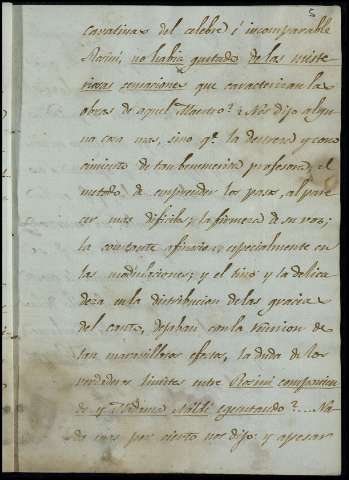 5
cavatinas del celebre é incomparable
Rosini, no habia gustado de las miste
riosas sensaciones que caracterizan las
obras de aquel Maestro? ¿Nos dijo algu
na cosa mas, sino qe. la destreza y cono
cimiento de tan benemerita profesora, el
metodo de emprender los pasos, al pare
cer mas dificiles; la firmeza de su voz;
la constante afinacion especialmente en
las modulaciones; y el tino y la delica
deza en la distribucion de las gracias
del canto, dejaban con la reunion de
tan maravillosos efectos, la duda de los
verdaderos limites entre Rosini componien
do y Madama Naldi egecutando? .... Na
da mas por cierto nos dijo: y apesar